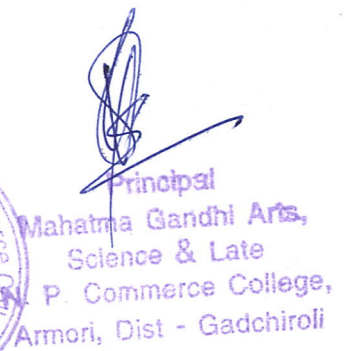 Principal
Mahatma Gandhi Arts,
Science & Late
N. P. Commerce College,
Armori, Dist - Gadchiroli